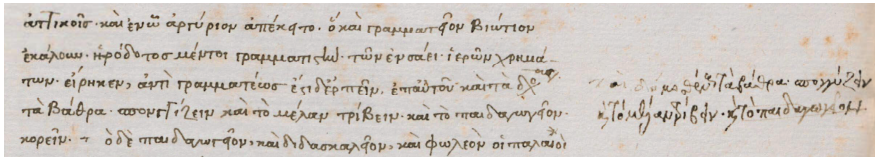 ἀττικοῖς· καὶ ἐν ᾧ ἀργύριον ἀπέκειτο. ὃ καὶ γραμματεῖον βιώτιον
ἐκάλουν. ἡρόδοτος μέντοι γραμματιστὴν. τῶν ἐν σάει ἱερῶν χρημά-
των. εἴρηκεν, ἀντὶ γραμματέως. ἔστι δ' εἰπεῖν, ἐπ' αὐτοῦ καὶ τὰ
τὰ βάθρα σπογγίζειν καὶ τὸ μέλαν τρίβειν. καὶ τὸ παιδαγωγεῖον
κορεῖν. ὁ δὲ παιδαγωγεῖον, καὶ διδασκαλεῖον, καὶ φωλεὸν οἱ παλαιοὶ
τὰ βάθρα σπογγίζειν
κ τὸ μέλαν τρίβειν. κ τὸ παιδαγωγεῖον